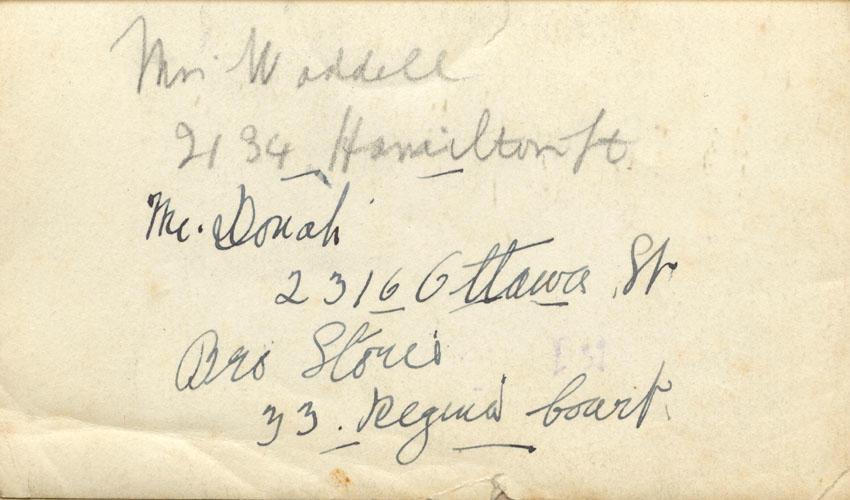 Mrs Waddell
2134 Hamilton St
Mc. Donah
2316 Ottawa St
Bro Stones
33. Regina Court